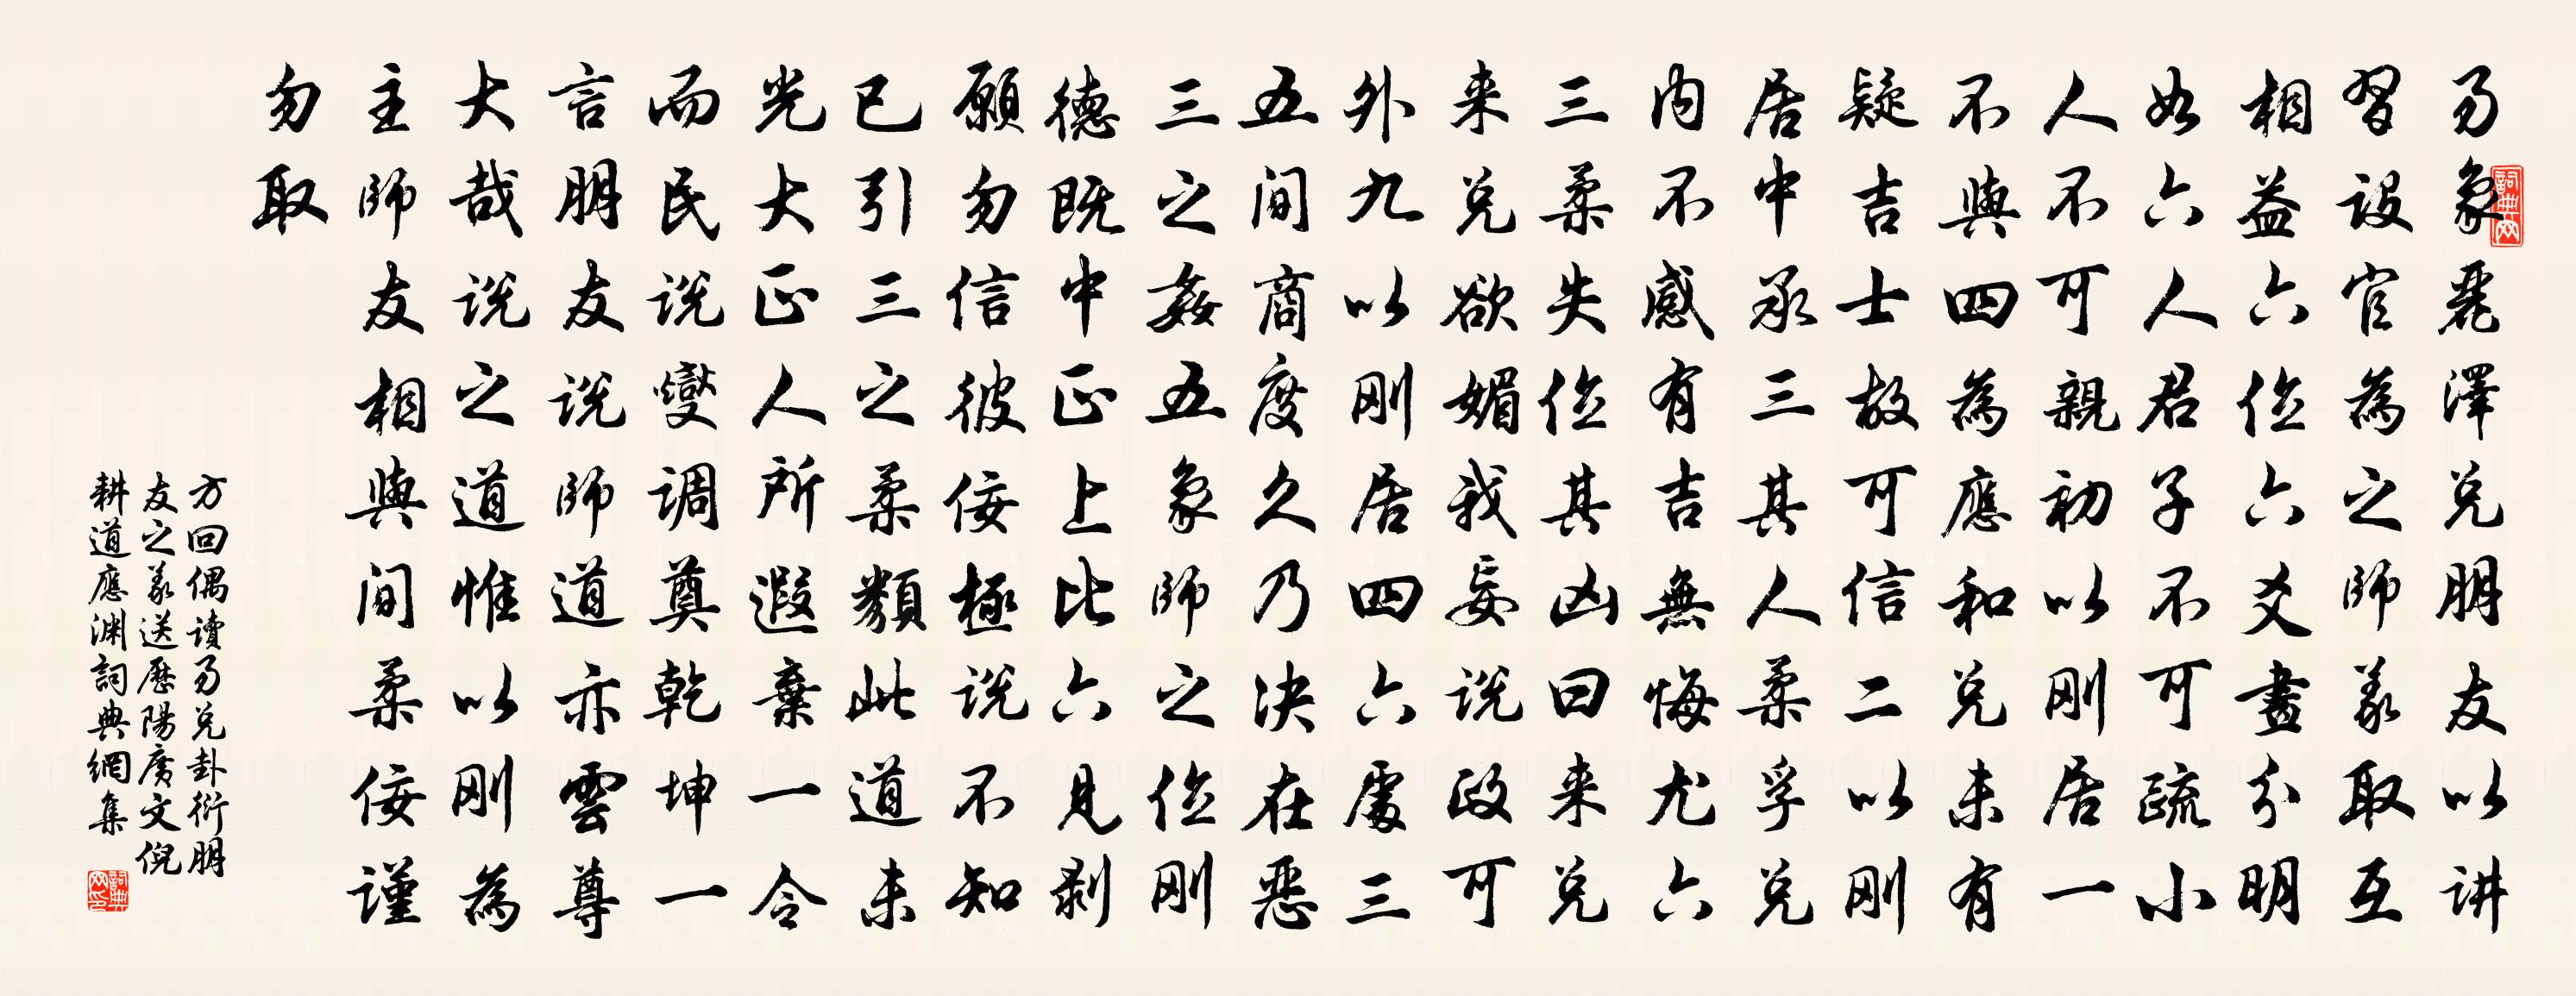 易象麗澤兑朋友以讲
習设官為之師義取互
相益六位六爻畫分明
如六人君子不可疏小
人不可親初以刚居一
不與四為應和兑未有
疑吉士故可信二以刚
居中承三其人柔孚兑
内不感有吉無悔尤六
三柔失位其凶曰来兑
来兑欲媚我妄说政可
外九以刚居四六處三
五间商度久乃决在恶
三之姦五象師之位刚
德既中正上比六見剥
願勿信彼佞極说不知
已引三之柔類此道未
光大正人所遐棄一令
而民说變调奠乾坤一
言朋友说師道亦雲尊
大哉说之道惟以刚為
主師友相與间柔佞谨
勿取
方回偶读易兑卦衍朋
友之義送歷陽廣文倪
耕道應渊詞典網集
詞典网
詞典网印